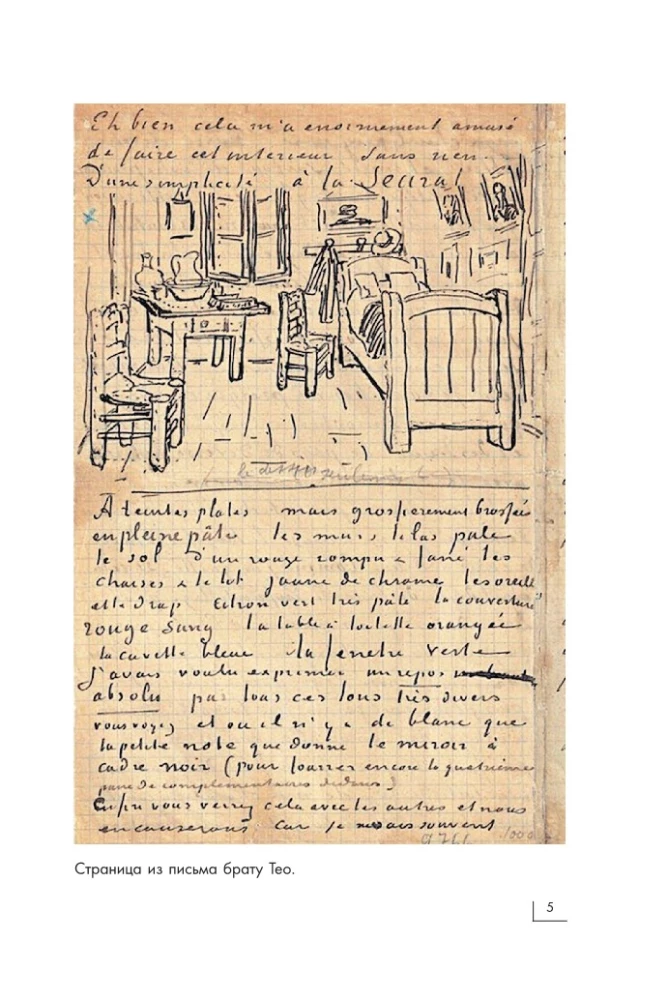 Eh bien cela m'a enormement amusé
de faire cet interieur sans rien.
D'une simplicité à la Seurat
A teintes plates mais grossierement brossées
en pleine pâte les murs lilas pale
le sol d'un rouge rompu & fané les
chaises & le lit jaune de chrome les oreillers
et le drap citron vert très pâle la couverture
rouge sang la table à toilette orangée
la cuvette bleue la fenetre verte
J'avais voulu exprimer un repos
absolu par tous ces tons très divers
vous voyez et où il n'y a de blanc que
la petite note que donne le miroir à
cadre noir (pour fourrer encore la quatrième
paire de complementaires dedans)
Enfin vous verrez cela avec les autres et nous
en causerons car je ne sais souvent
Страница из письма брату Тео.
5